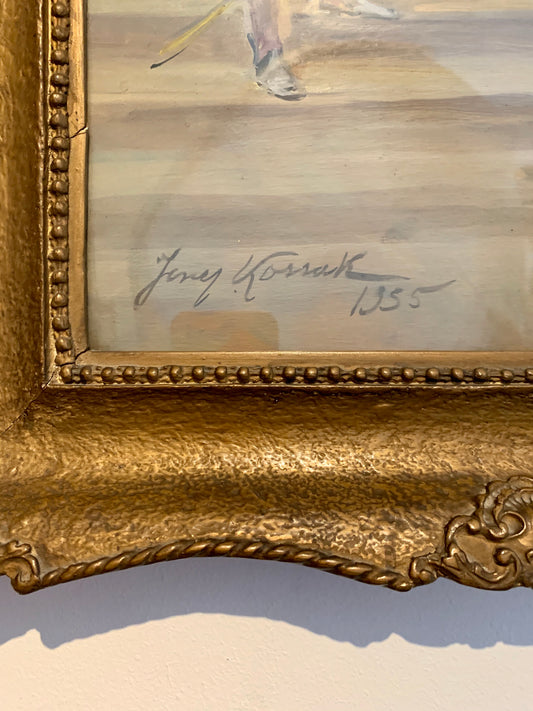 Jerzy Kossak
1955